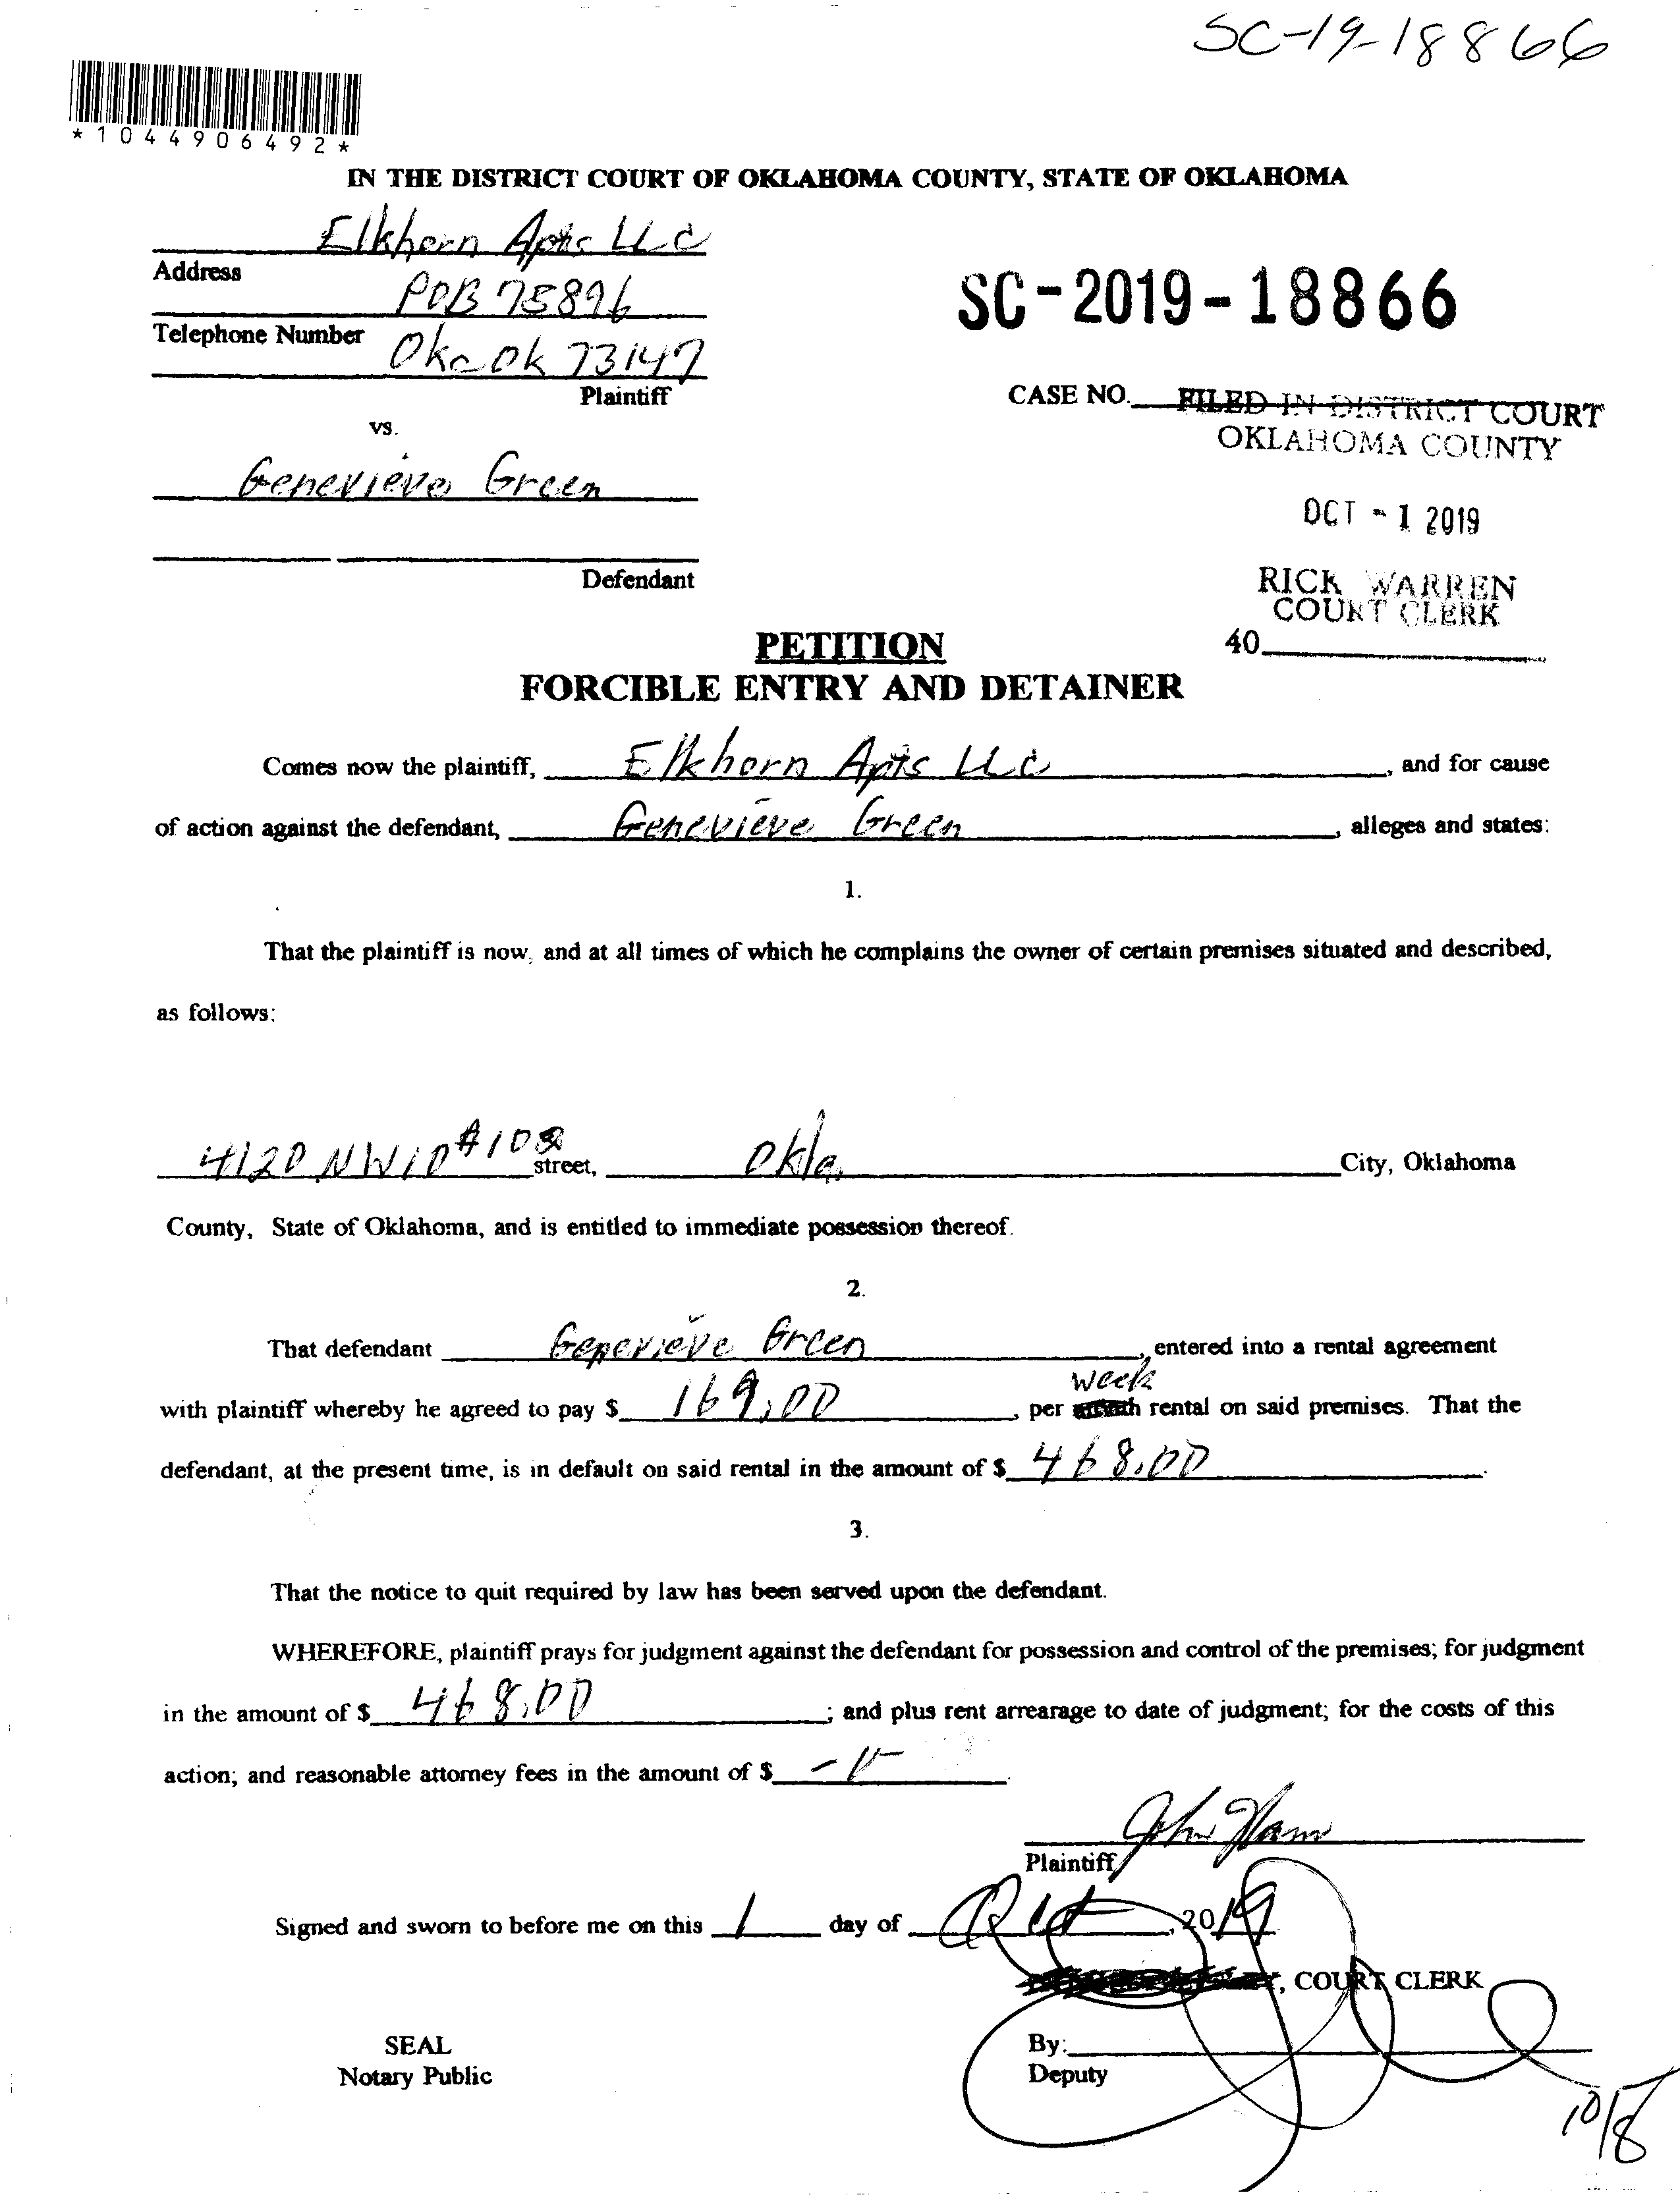 SC-19-18866
*1044906492*
IN THE DISTRICT COURT OF OKLAHOMA COUNTY, STATE OF OKLAHOMA
Elkhorn Apts LLC
Address
POB 75896
Telephone Number
Okc Ok 73147
Plaintiff
SC-2019-18866
CASE NO.
FILED IN DISTRICT COURT
OKLAHOMA COUNTY
OCT - 1 2019
RICK WARREN
COURT CLERK
40
vs.
Genevieve Green
Defendant
PETITION
FORCIBLE ENTRY AND DETAINER
Comes now the plaintiff, Elkhorn Apts LLC, and for cause
of action against the defendant, Genevieve Green, alleges and states:
1.
That the plaintiff is now, and at all times of which he complains the owner of certain premises situated and described,
as follows:
4120 NW10 street, Okla. City, Oklahoma
County, State of Oklahoma, and is entitled to immediate possession thereof.
2.
That defendant Genevieve Green, entered into a rental agreement
with plaintiff whereby he agreed to pay $ 169.00, per week rental on said premises. That the
defendant, at the present time, is in default on said rental in the amount of $ 468.00.
3.
That the notice to quit required by law has been served upon the defendant.
WHEREFORE, plaintiff prays for judgment against the defendant for possession and control of the premises; for judgment
in the amount of $ 468.00; and plus rent arrearage to date of judgment; for the costs of this
action; and reasonable attorney fees in the amount of $
John
Plaintiff
Signed and sworn to before me on this 1 day of Oct, 2019
, COURT CLERK
SEAL
Notary Public
By:
Deputy
10/8